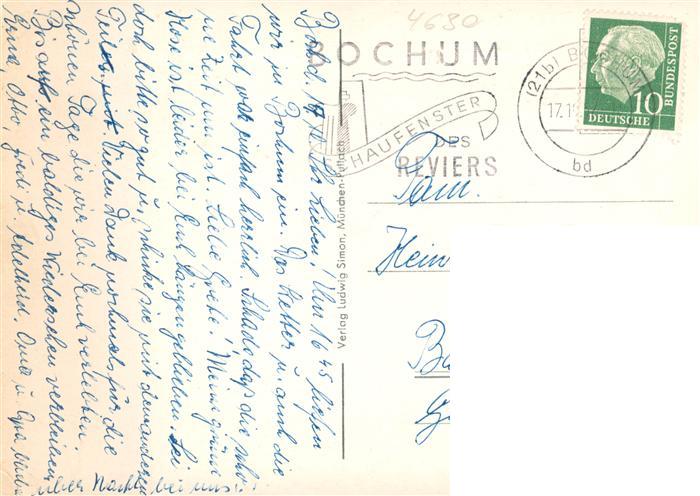 4680
BOCHUM
SCHAUFENSTER
DES
REVIERS
(21b) BOCHUM
17.1
bd
10
DEUTSCHE
BUNDESPOST
Verlag Ludwig Simon, München-Pullach
Fam.
Hein
Ihr Lieben! Um 16 45 liefen
wir in Bochum ein. Das Wetter u. auch die
Fahrt war einfach herrlich. Schade daß die schöne
Zeit um ist. Liebe Grete! Meine grüne
Hose ist leider bei Euch hängengeblieben. Sei
doch bitte so gut u. schicke sie mit den anderen
Teilen mit. Vielen Dank nochmals für die
schönen Tage die wir bei Euch verlebten.
Bis auf ein baldiges Wiedersehen verbleiben
Erna, Otto, u. Adelheid. Oma u. Opa
über Nacht bei uns.